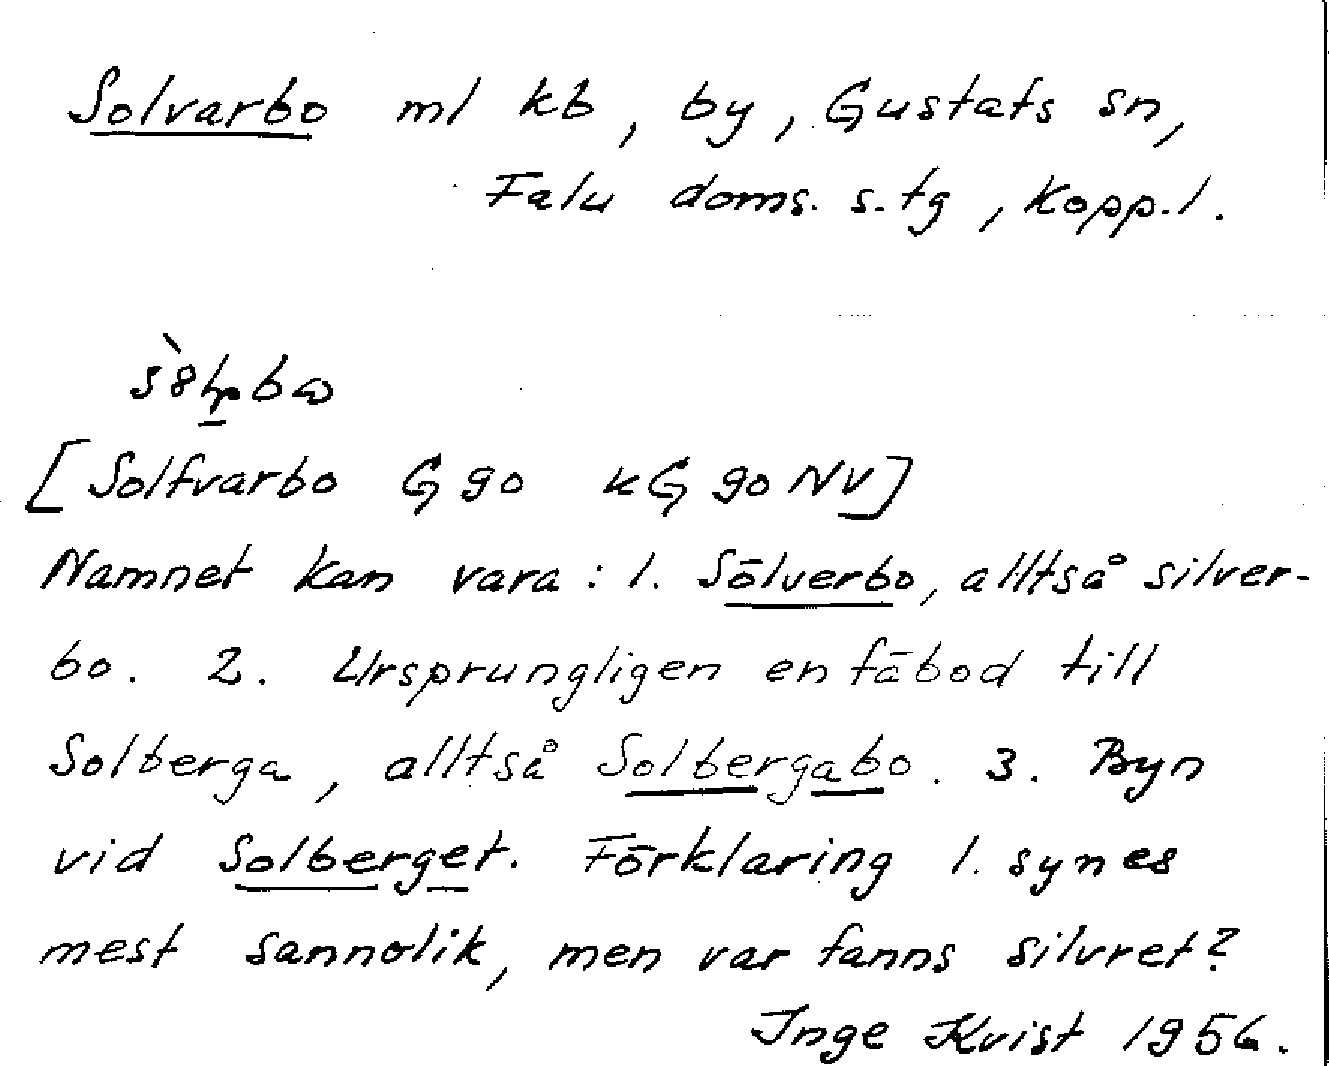 Solvarbo ml kb, by, Gustafs sn,
Falu doms. s. tg, Kopp. l.
[Solfvarbo G 90 kG 90 NV]
Namnet kan vara: 1. Sölverbo, alltså silver-
bo. 2. Ursprungligen en fäbod till
Solberga, alltså Solbergabo. 3. Byn
vid Solberget. Förklaring 1. synes
mest sannolik, men var fanns silvret?
Inge Kvist